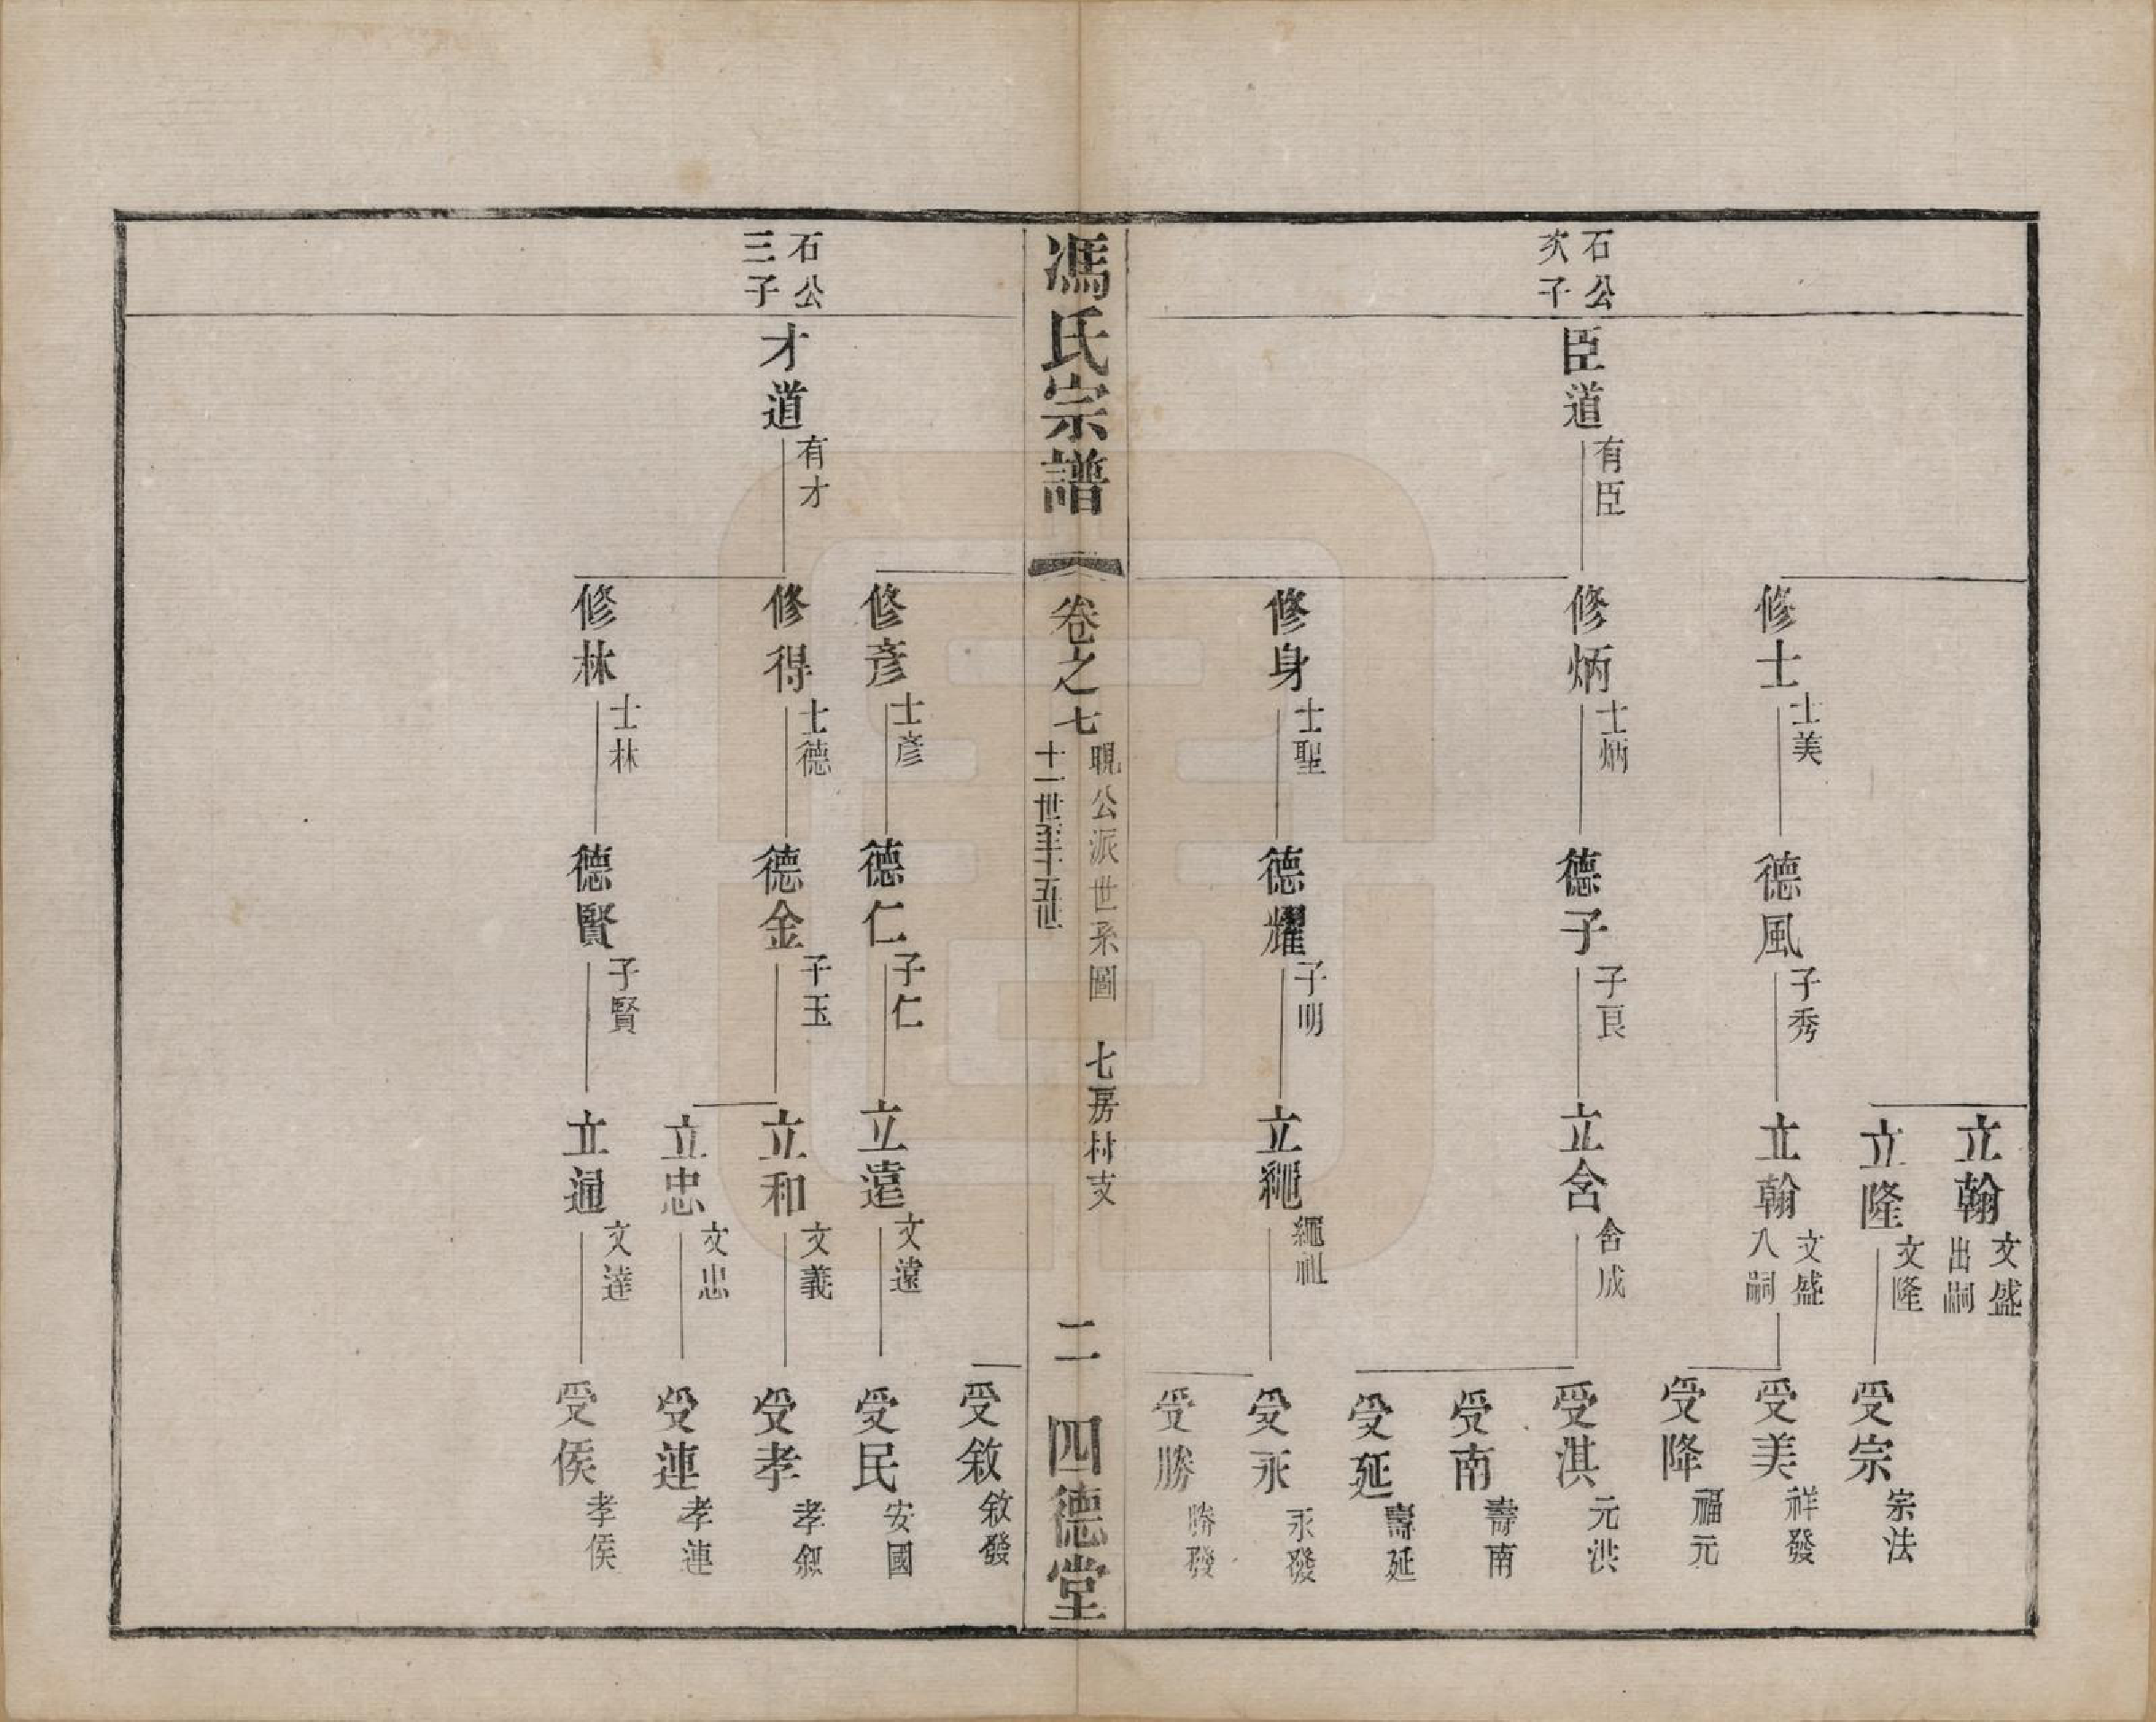 石公
次子
臣道 有臣
修士 士美
修炳 士炳
修身 士聖
德風 子秀
德子 子良
德耀 子明
立翰 文盛
出嗣
立隆 文隆
立翰 文盛
入嗣
立含 含成
立繩 繩祖
受宗 宗法
受美 祥發
受降 福元
受淇 元洪
受南 壽南
受延 壽延
受永 永發
受勝 勝發
馮氏宗譜
卷之七
晛公派世系圖 七房村支
十一世至十五世
二
四德堂
石公
三子
才道 有才
修彥 士彥
修得 士德
修林 士林
德仁 子仁
德金 子玉
德賢 子賢
立遠 文遠
立和 文義
立忠 文忠
立通 文達
受敘 敘發
受民 安國
受孝 孝叙
受連 孝連
受侯 孝侯